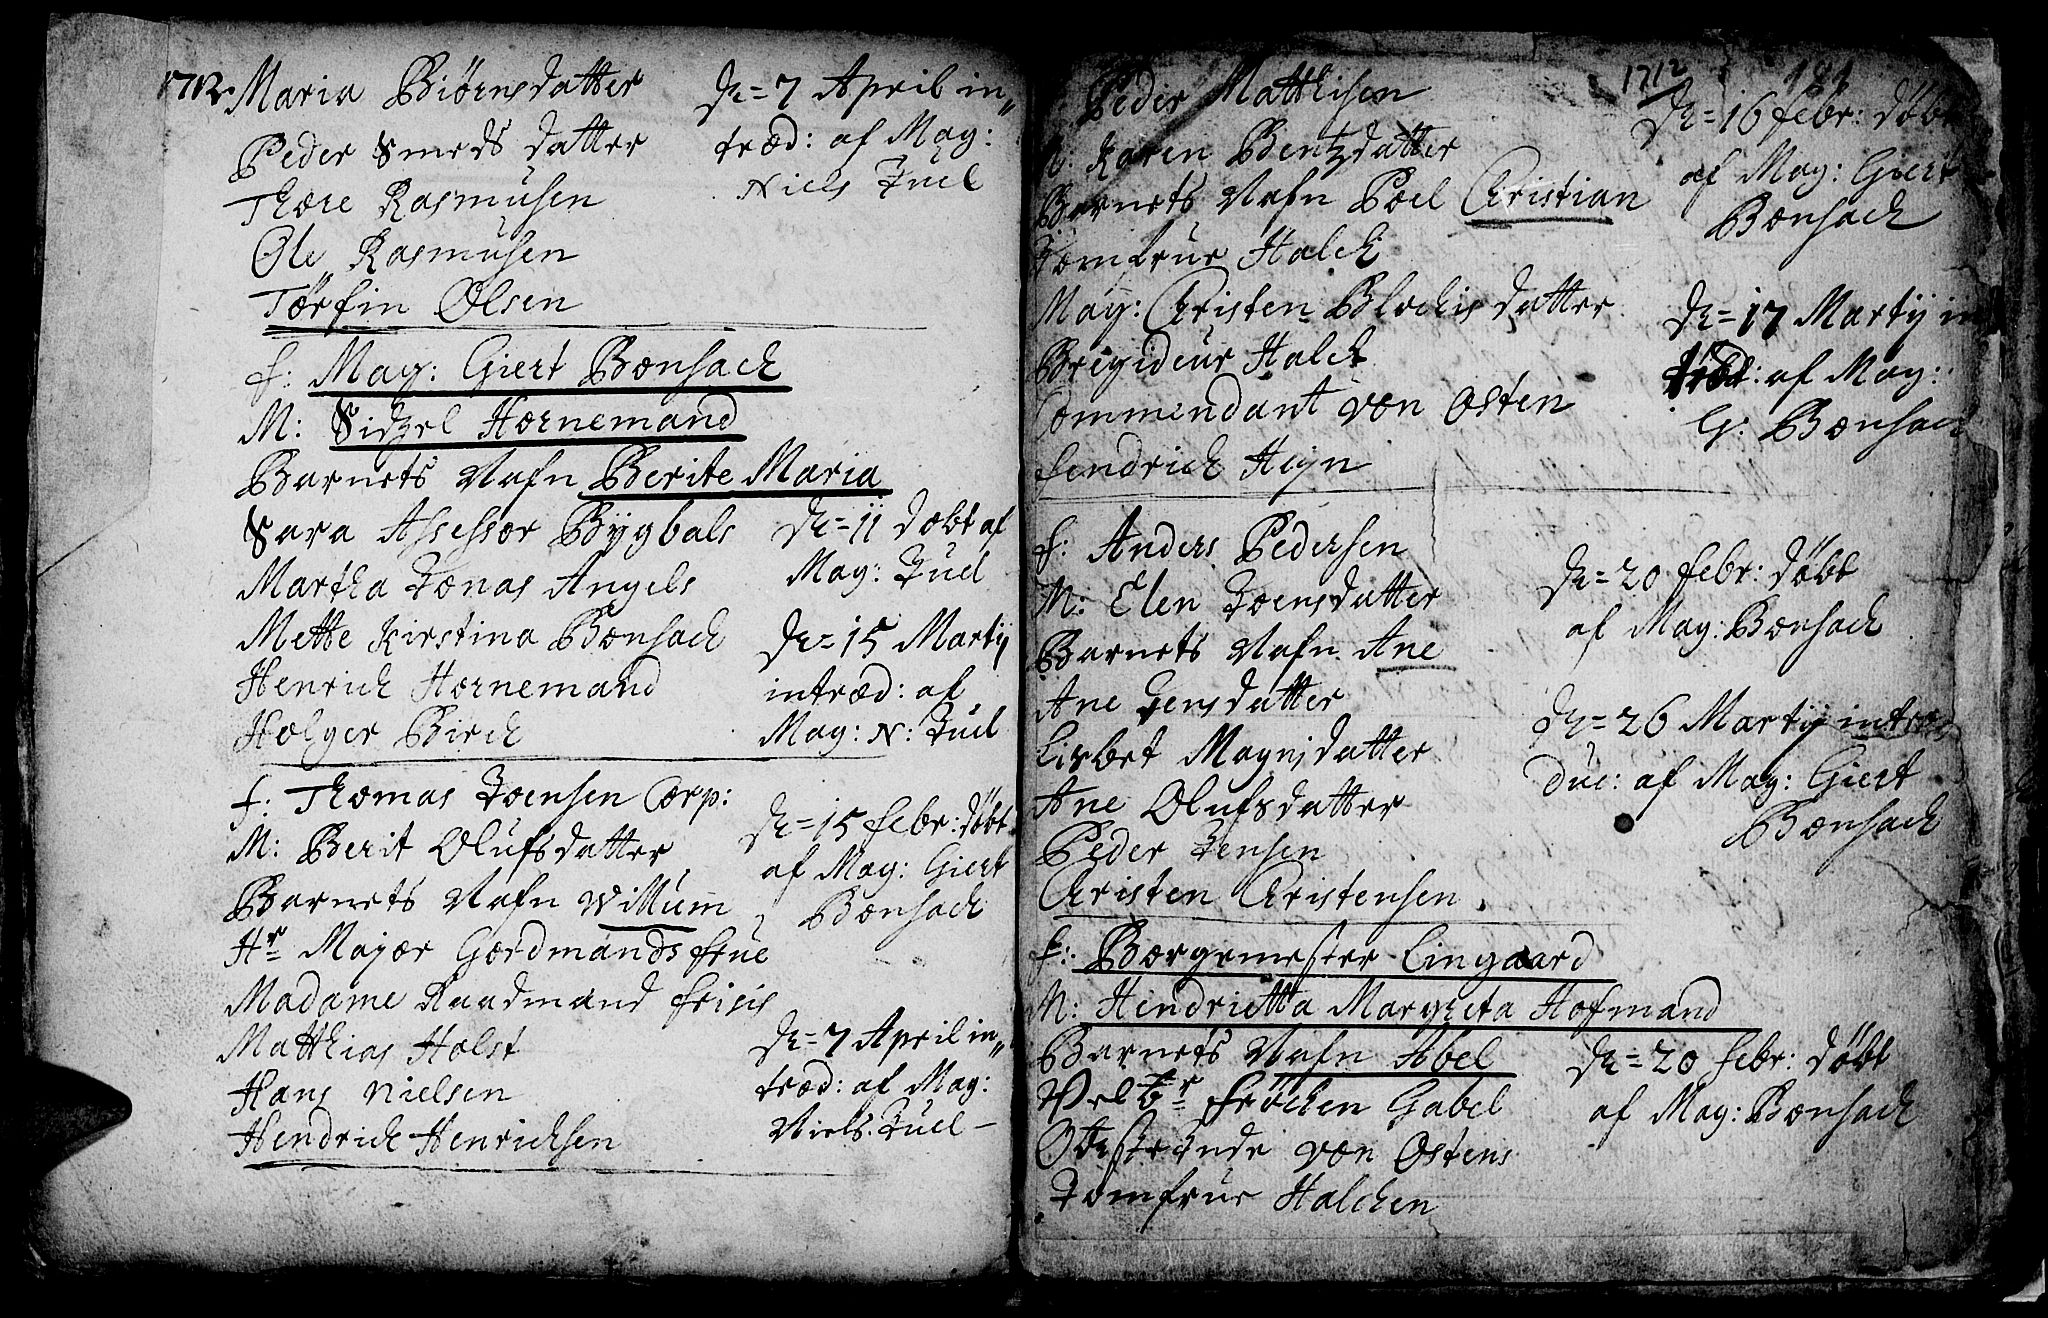 1712. Maria Biörnsdatter
Peder Smeds datter
Thore Rasmusen
Ole Rasmusen
Torfin Olsen
dn = 7 April in,,
træd: af Mag:
Niels Juel
f: Mag: Giert Bonsach
M: Sidzel Hornemand
Barnets Nafn Berite Maria
Sara Assessor Bygbals
Martha Jonas Angels
Mette Kirstina Bonsach
Henrich Hornemand
Holger Birch
dn = 11 dobt af
Mag: Juel
dn = 15 Martij
intræd: af
Mag: N: Juel
f: Thomas Joensen Corp:
M: Berit Olufsdatter
Barnets Nafn Villum
Hr Major Gordmands frue
Madame Raadmand friis
Matthias Holst
Hans Nielsen
Hendrich Henrichsen
dn = 15 febr: döbt
af Mag: Giert
Bonsach
dn = 7 April in,,
træd: af Mag:
Niels Juel
1712
Peder Matthisen
M: Karen Bentzdatter
Barnets Nafn Poel Christian
Jomfrue Halch
Mag: Christen Blochis datter
Brigideur Halch
Commendant von Osten
fendrich Hejn
dn = 16 febr: döbt
af Mag: Giert
Bonsach
dn = 17 Martij in
af Mag:
G: Bonsach
f: Anders Pedersen
M: Elen Joensdatter
Barnets Nafn Ane
Ane Jensdatter
Lisbet Magnisdatter
Ane Olufsdatter
Peder Jensen
Christen Christensen
dn = 20 febr: döbt
af Mag: Bonsach
dn = 26 Martij intro
duc: af Mag: Giert
Bonsach
f: Borgemester Lingaard
M: Hendrietta Margreta Hofmand
Barnets Nafn Abel
Velbr fröchen Gabel
von Ostens
Jomfrue Halchen
dn = 20 febr: döbt
af Mag: Bonsach